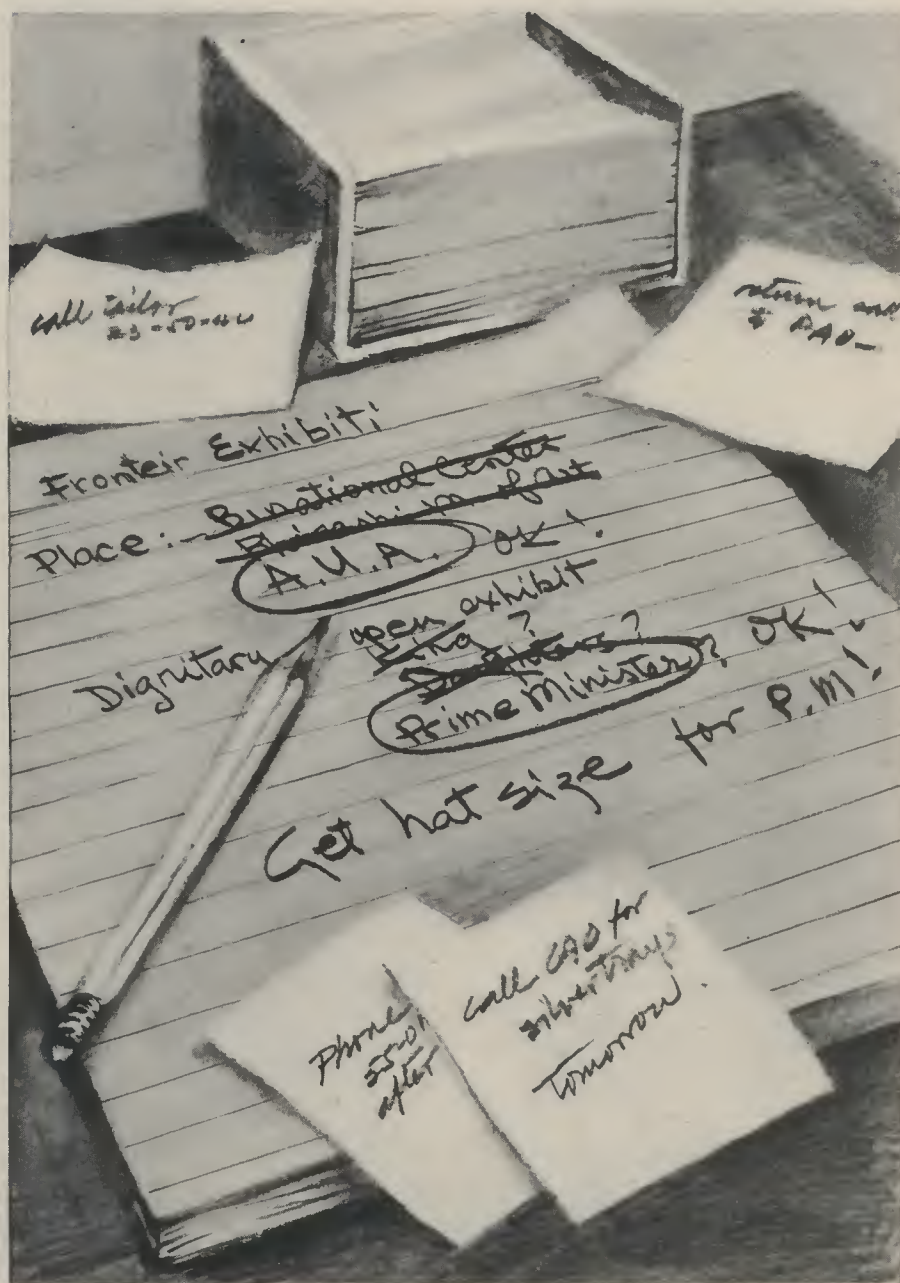 call tailor
return and
PAO-
Fronteir Exhibit:
Place: Binational Center
A.U.A. OK!
Dignitary open exhibit
King?
Prime Minister? OK!
Get hat size for P.M!
Phone
after
call CAO for
silver trays
tomorrow.